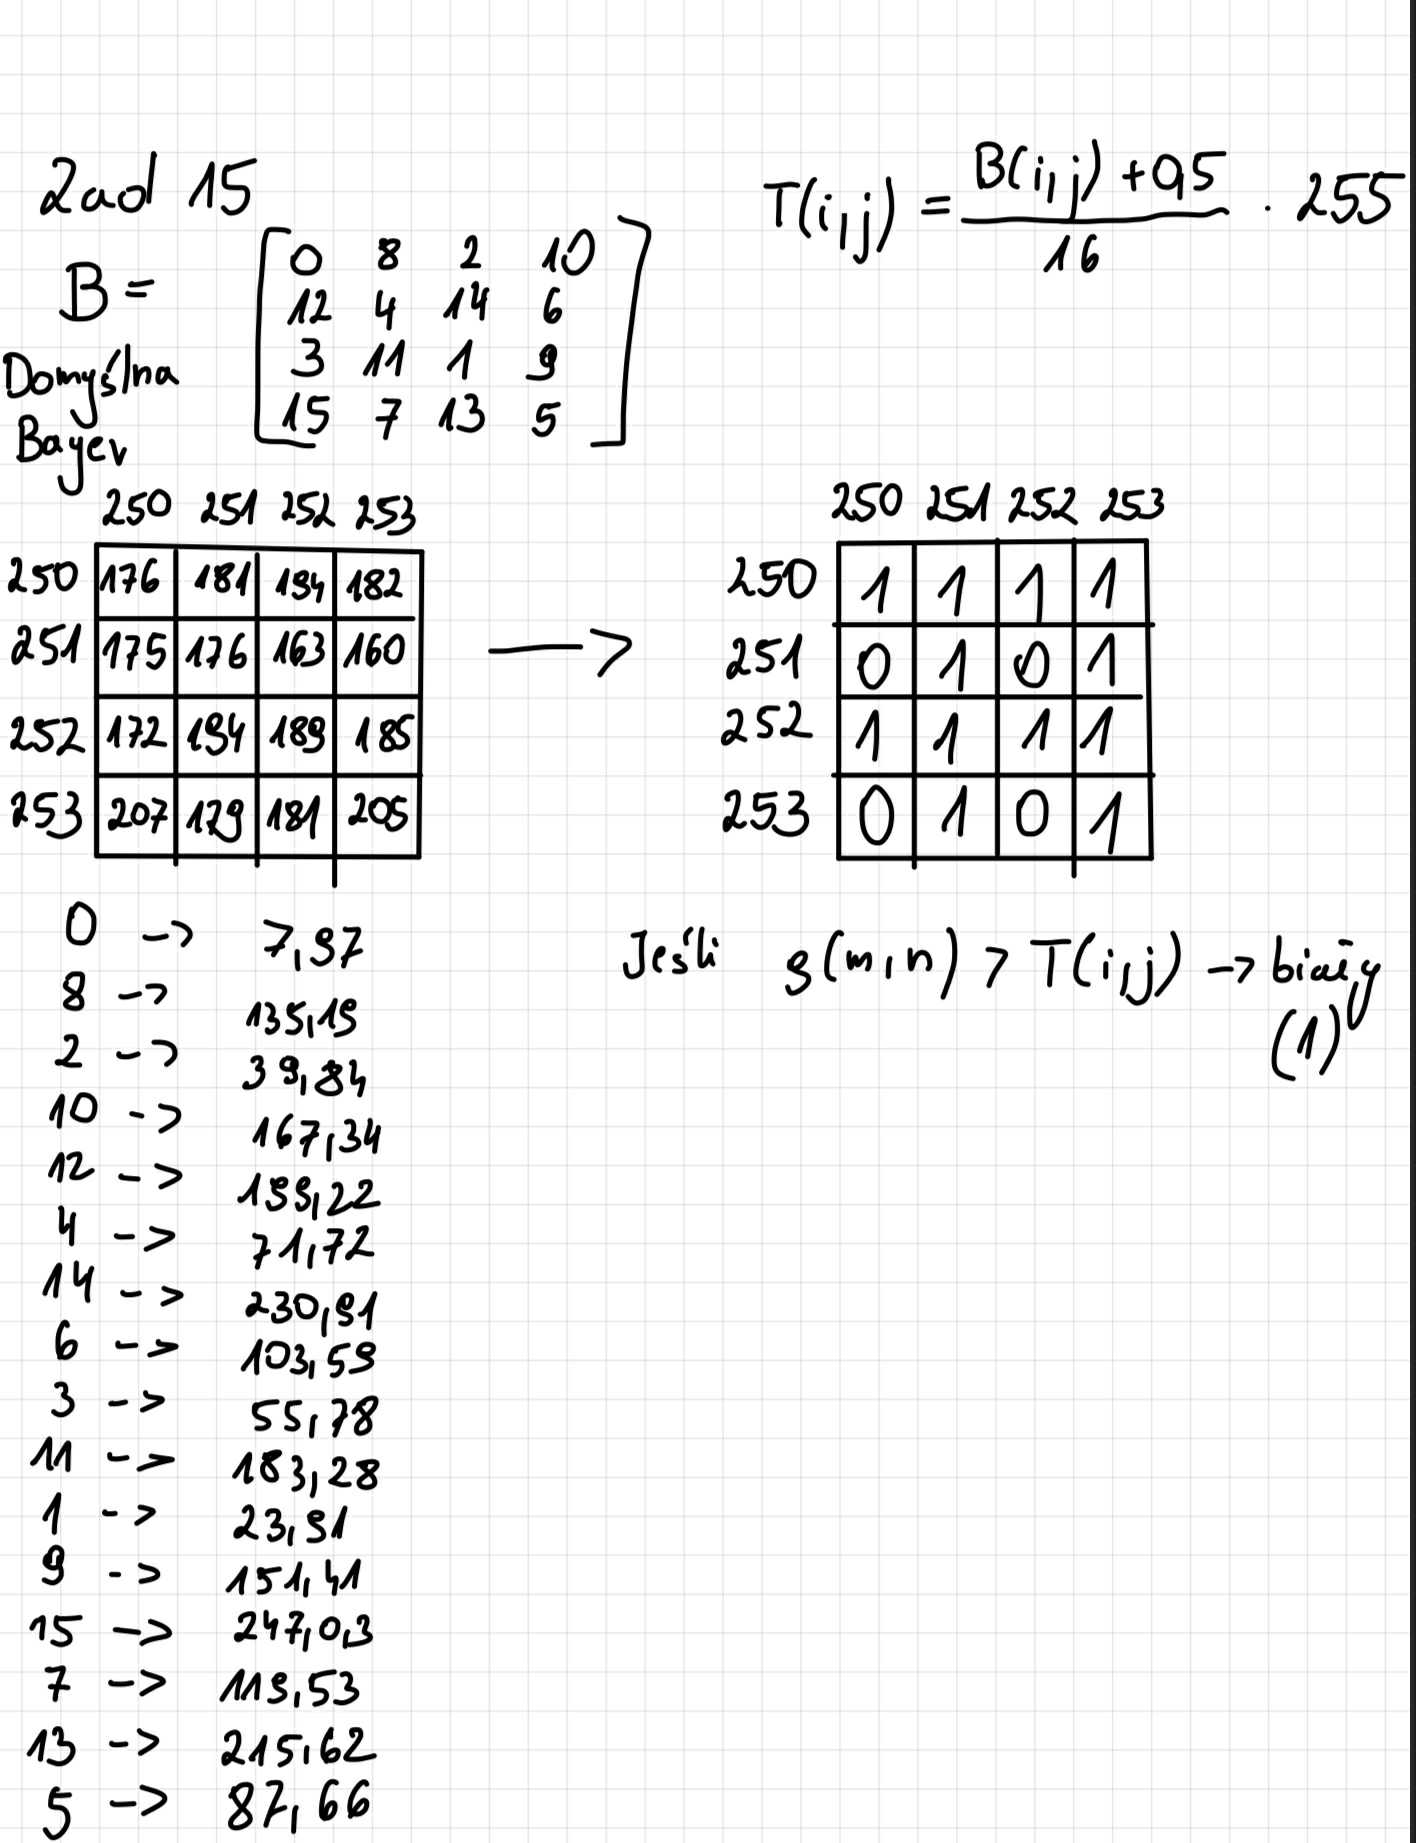 Zad 15
T(i,j) = B(i,j) + 0,5 / 16 · 255
B = [ 0 8 2 10
12 4 14 6
3 11 1 9
15 7 13 5 ]
Domyślna
Bayer
250 251 252 253
250 176 181 194 182
251 175 176 163 160
252 172 194 189 185
253 207 179 181 205
—>
250 251 252 253
250 1 1 1 1
251 0 1 0 1
252 1 1 1 1
253 0 1 0 1
0 -> 7,97
8 -> 135,19
2 -> 39,84
10 -> 167,34
12 -> 199,22
4 -> 71,72
14 -> 230,91
6 -> 103,59
3 -> 55,78
11 -> 183,28
1 -> 23,91
9 -> 151,41
15 -> 247,0,3
7 -> 119,53
13 -> 215,62
5 -> 87,66
Jeśli g(m,n) > T(i,j) -> biały
(1)